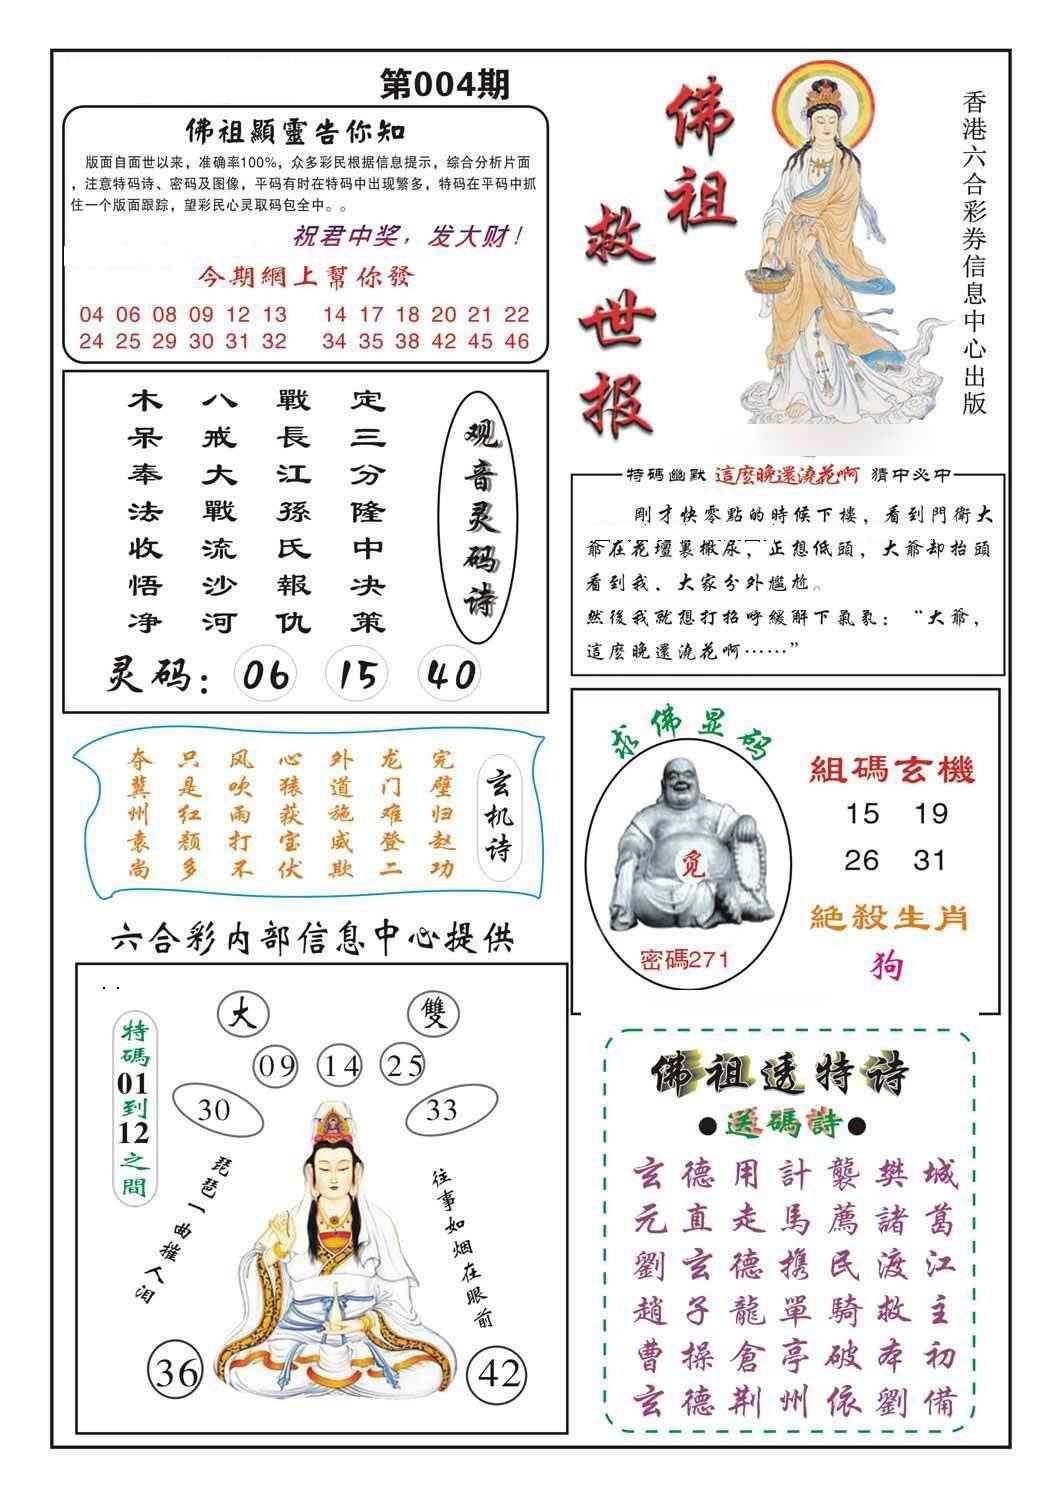 第004期
佛祖顯靈告你知
版面自面世以来，准确率100%，众多彩民根据信息提示，综合分析片面
，注意特码诗、密码及图像，平码有时在特码中出现繁多，特码在平码中抓
住一个版面跟踪，望彩民心灵取码包全中。。
祝君中奖，发大财！
今期網上幫你發
04 06 08 09 12 13 14 17 18 20 21 22
24 25 29 30 31 32 34 35 38 42 45 46
佛祖
救世报
香港六合彩券信息中心出版
观音灵码诗
定三分隆中决策
戰長江孫氏報仇
八戒大戰流沙河
木呆奉法收悟净
灵码：06 15 40
特碼幽默 這麽晚還澆花啊 猜中必中
剛才快零點的時候下樓，看到門衛大
爺在花壇裏撒尿，正想低頭，大爺却抬頭
看到我，大家分外尷尬。
然後我就想打招呼緩解下氣氛：“大爺，
這麽晚還澆花啊……”
玄机诗
完璧归赵功
龙门难登二
外道施威欺
心猿获宝伏
风吹雨打不
只是红颜多
夺冀州袁尚
求佛显码
觅
密碼271
組碼玄機
15 19
26 31
絕殺生肖
狗
六合彩内部信息中心提供
特碼01到12之間
大 雙
09 14 25
30 33
琵琶一曲摧人泪
往事如烟在眼前
36 42
佛祖透特诗
●送碼詩●
玄德用計襲樊城
元直走馬薦諸葛
劉玄德携民渡江
趙子龍單騎救主
曹操倉亭破本初
玄德荆州依劉備